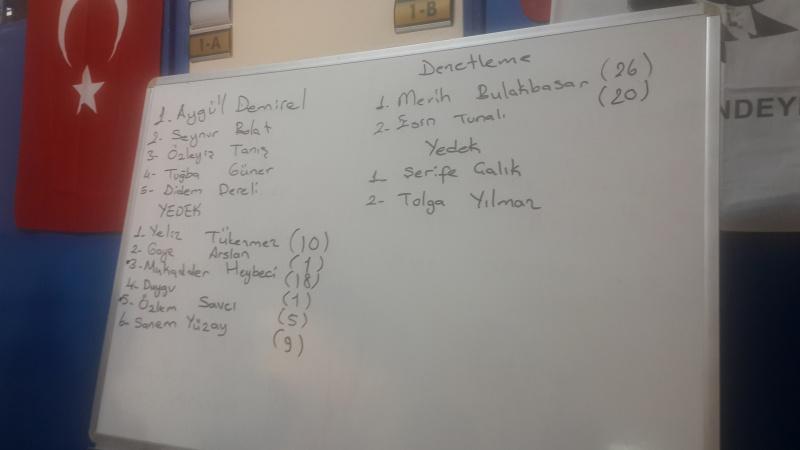 1-A
1-B
1. Aygül Demirel
2- Seynur Bolat
3- Özleyiş Tanış
4- Tuğba Güner
5- Didem Dereli
YEDEK
1- Yeliz Tükenmez (10)
2- Gaye Arslan (1)
3- Mukadder Heybeci (18)
4- Duygu (1)
5- Özlem Savcı (5)
6- Sanem Yüzay (9)
Denetleme
1. Merih Bulakbaşar (26)
2- Esin Tunalı (20)
Yedek
1 Şerife Çalık
2- Tolga Yılmaz
NDEY